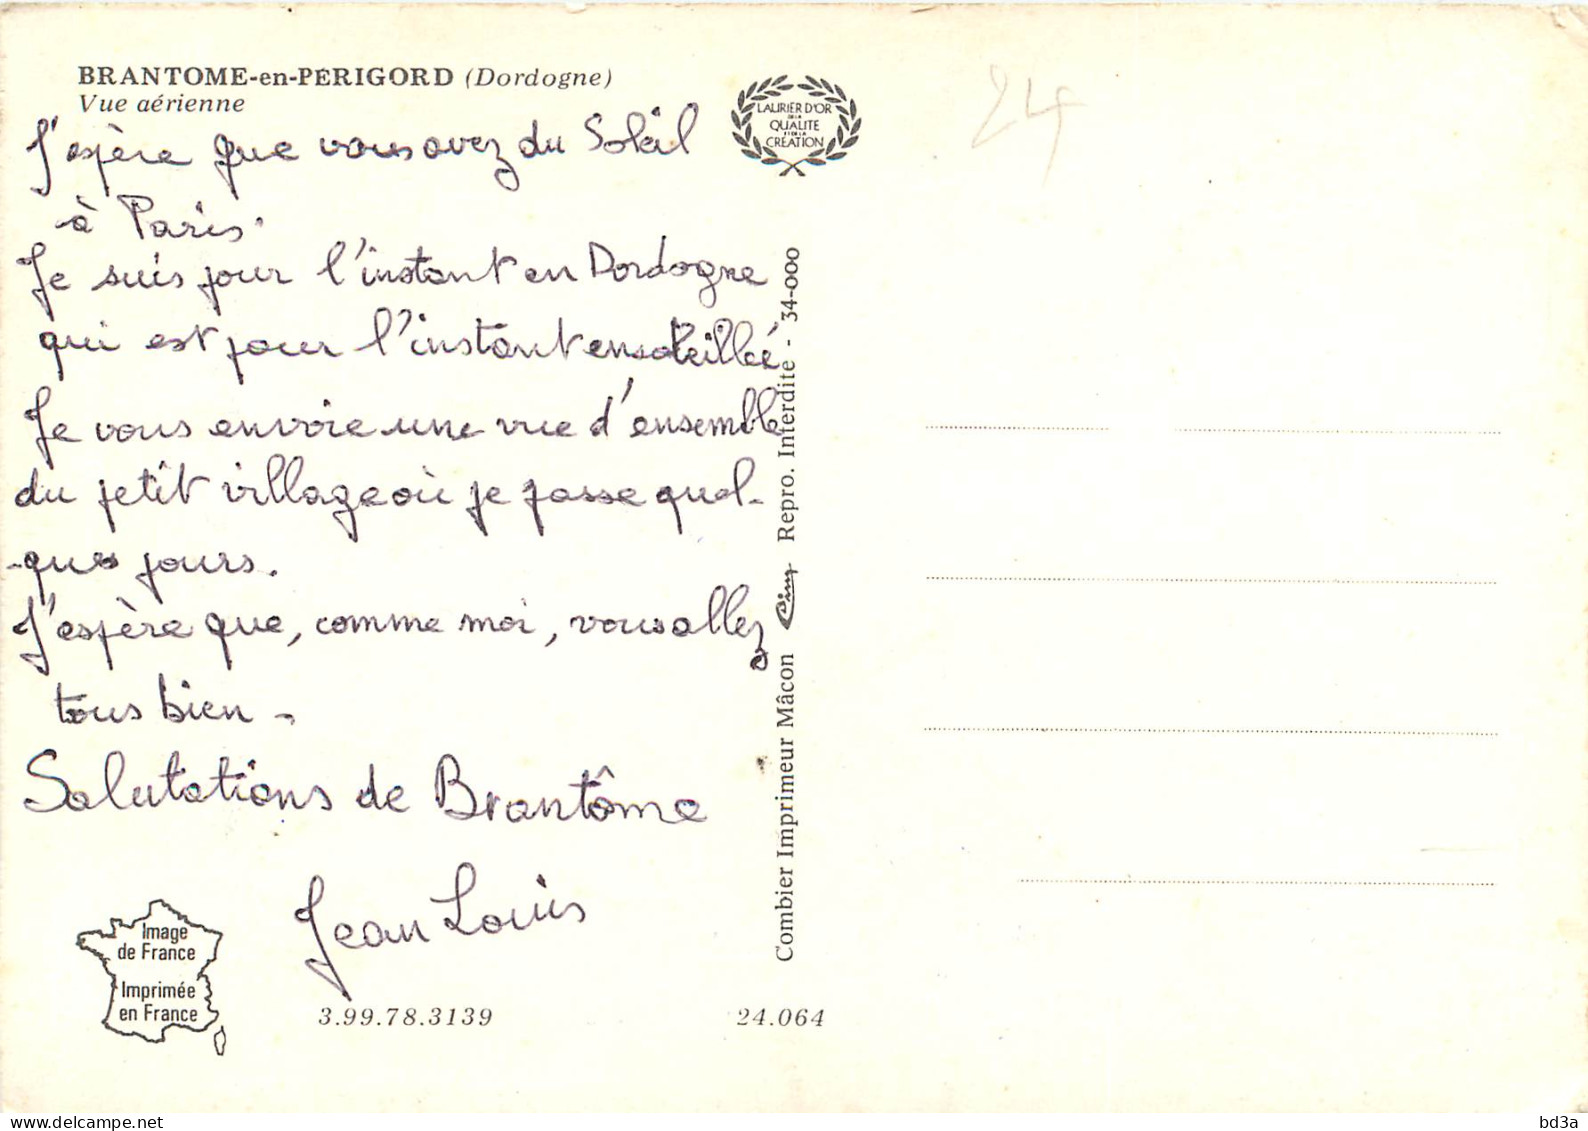 BRANTOME-en-PERIGORD (Dordogne)
Vue aérienne
J'espère que vous avez du Soleil
à Paris.
Je suis pour l'instant en Dordogne
qui est pour l'instant ensoleillée
Je vous envoie une vue d'ensemble
du petit village où je passe quel-
-ques jours.
J'espère que, comme moi, vous allez
tous bien -
Salutations de Brantôme
Jean Louis
Image
de France
Imprimée
en France
3.99.78.3139
24.064
LAURIER D'OR
DE LA
QUALITE
ET DE LA
CRÉATION
Combier Imprimeur Mâcon Cim Repro. Interdite - 34-000
24
delcampe.net
bd3a